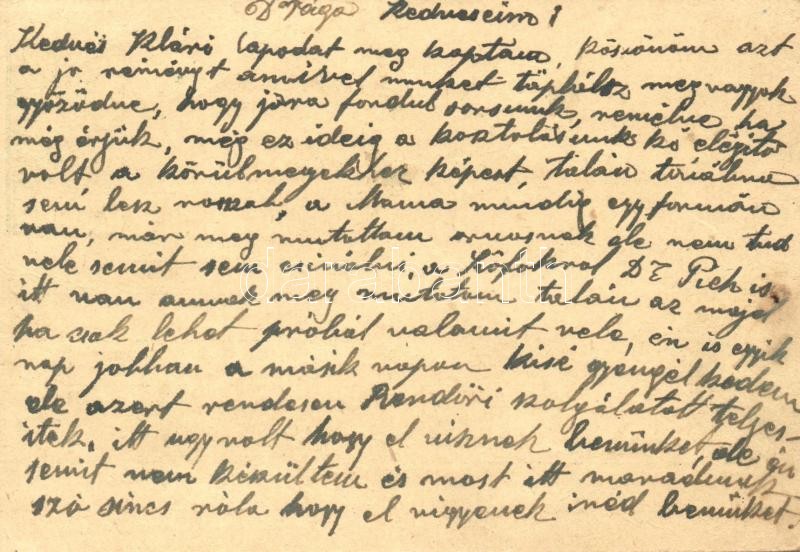 Drága Kedveseim!
Kedves Klári lapodat meg kaptam, kösiönöm azt
a jo reményt amivel minket táplálsz meg vagyok
győződve, hogy jóra fordul sorsunk, remélve ha
még érjük, még ez ideig a kosztolásunk ki elégitő
volt a körülmegekhez képest, talán továbra
sem lesz rossz, a Mama mindig egy formán
van, már meg mutattam orvosnak de nem tud
vele semit sem csinálni, a Dr Pich is
itt van annak meg mutatom talán az majd
ha csak lehet próbál valamit vele, én is egyik
nap jobban a másik napon kisé gyengélkedem
de azert rendesen Rendőri szolgálatott teljes-
itek, itt ugy volt hogy el visznek benünket, de én
semit nem készültem és most itt maradunk
szó sincs róla hogy el vigyenek inéd benünket.
darabanth